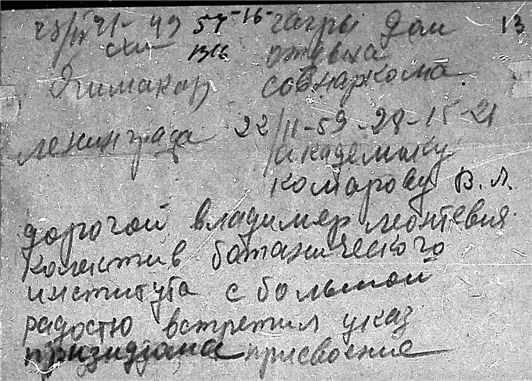 57-16- гагры дом 13
отдыха
совнаркома
ленинграда 22/II-59-28-15-21
академику
комарову В. Л.
дорогой владимер леонтевич
колектив ботанического
института с большой
радостю встретил указ
призидиума присвоение